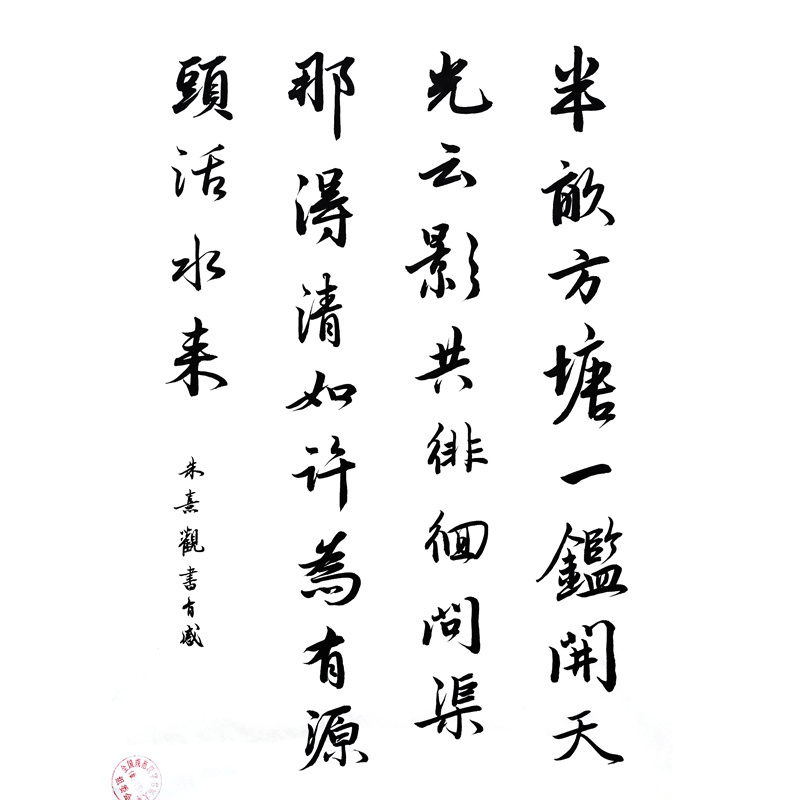 半畝方塘一鑑開天
光云影共徘徊問渠
那得清如许為有源
頭活水来
朱熹觀書有感